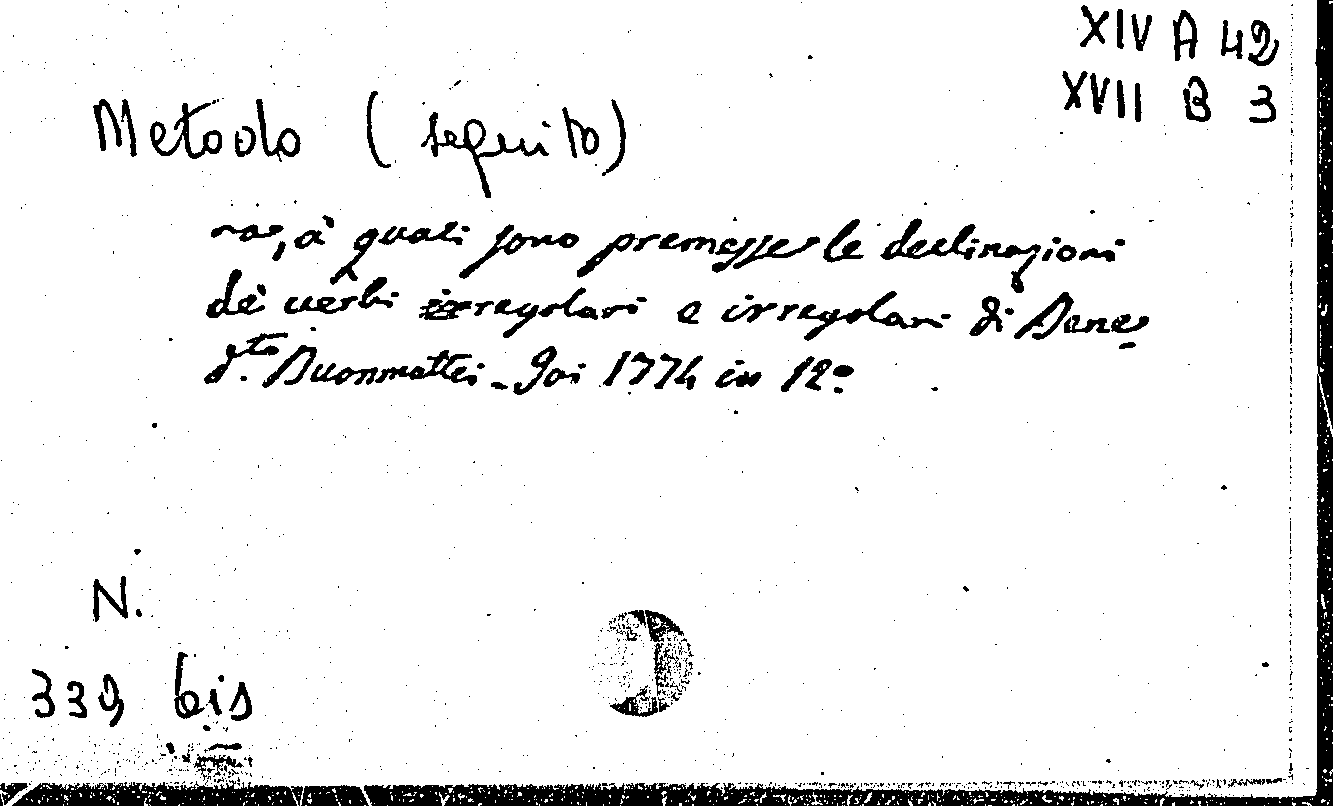 XIV A 42
XVII B 3
Metodo (seguito)
nas, a' quali sono premesse le declinazioni
de' verbi irregolari e irregolari di Bene
d.to Buonmattei - Ivi 1774 in 12°
N.
339 bis